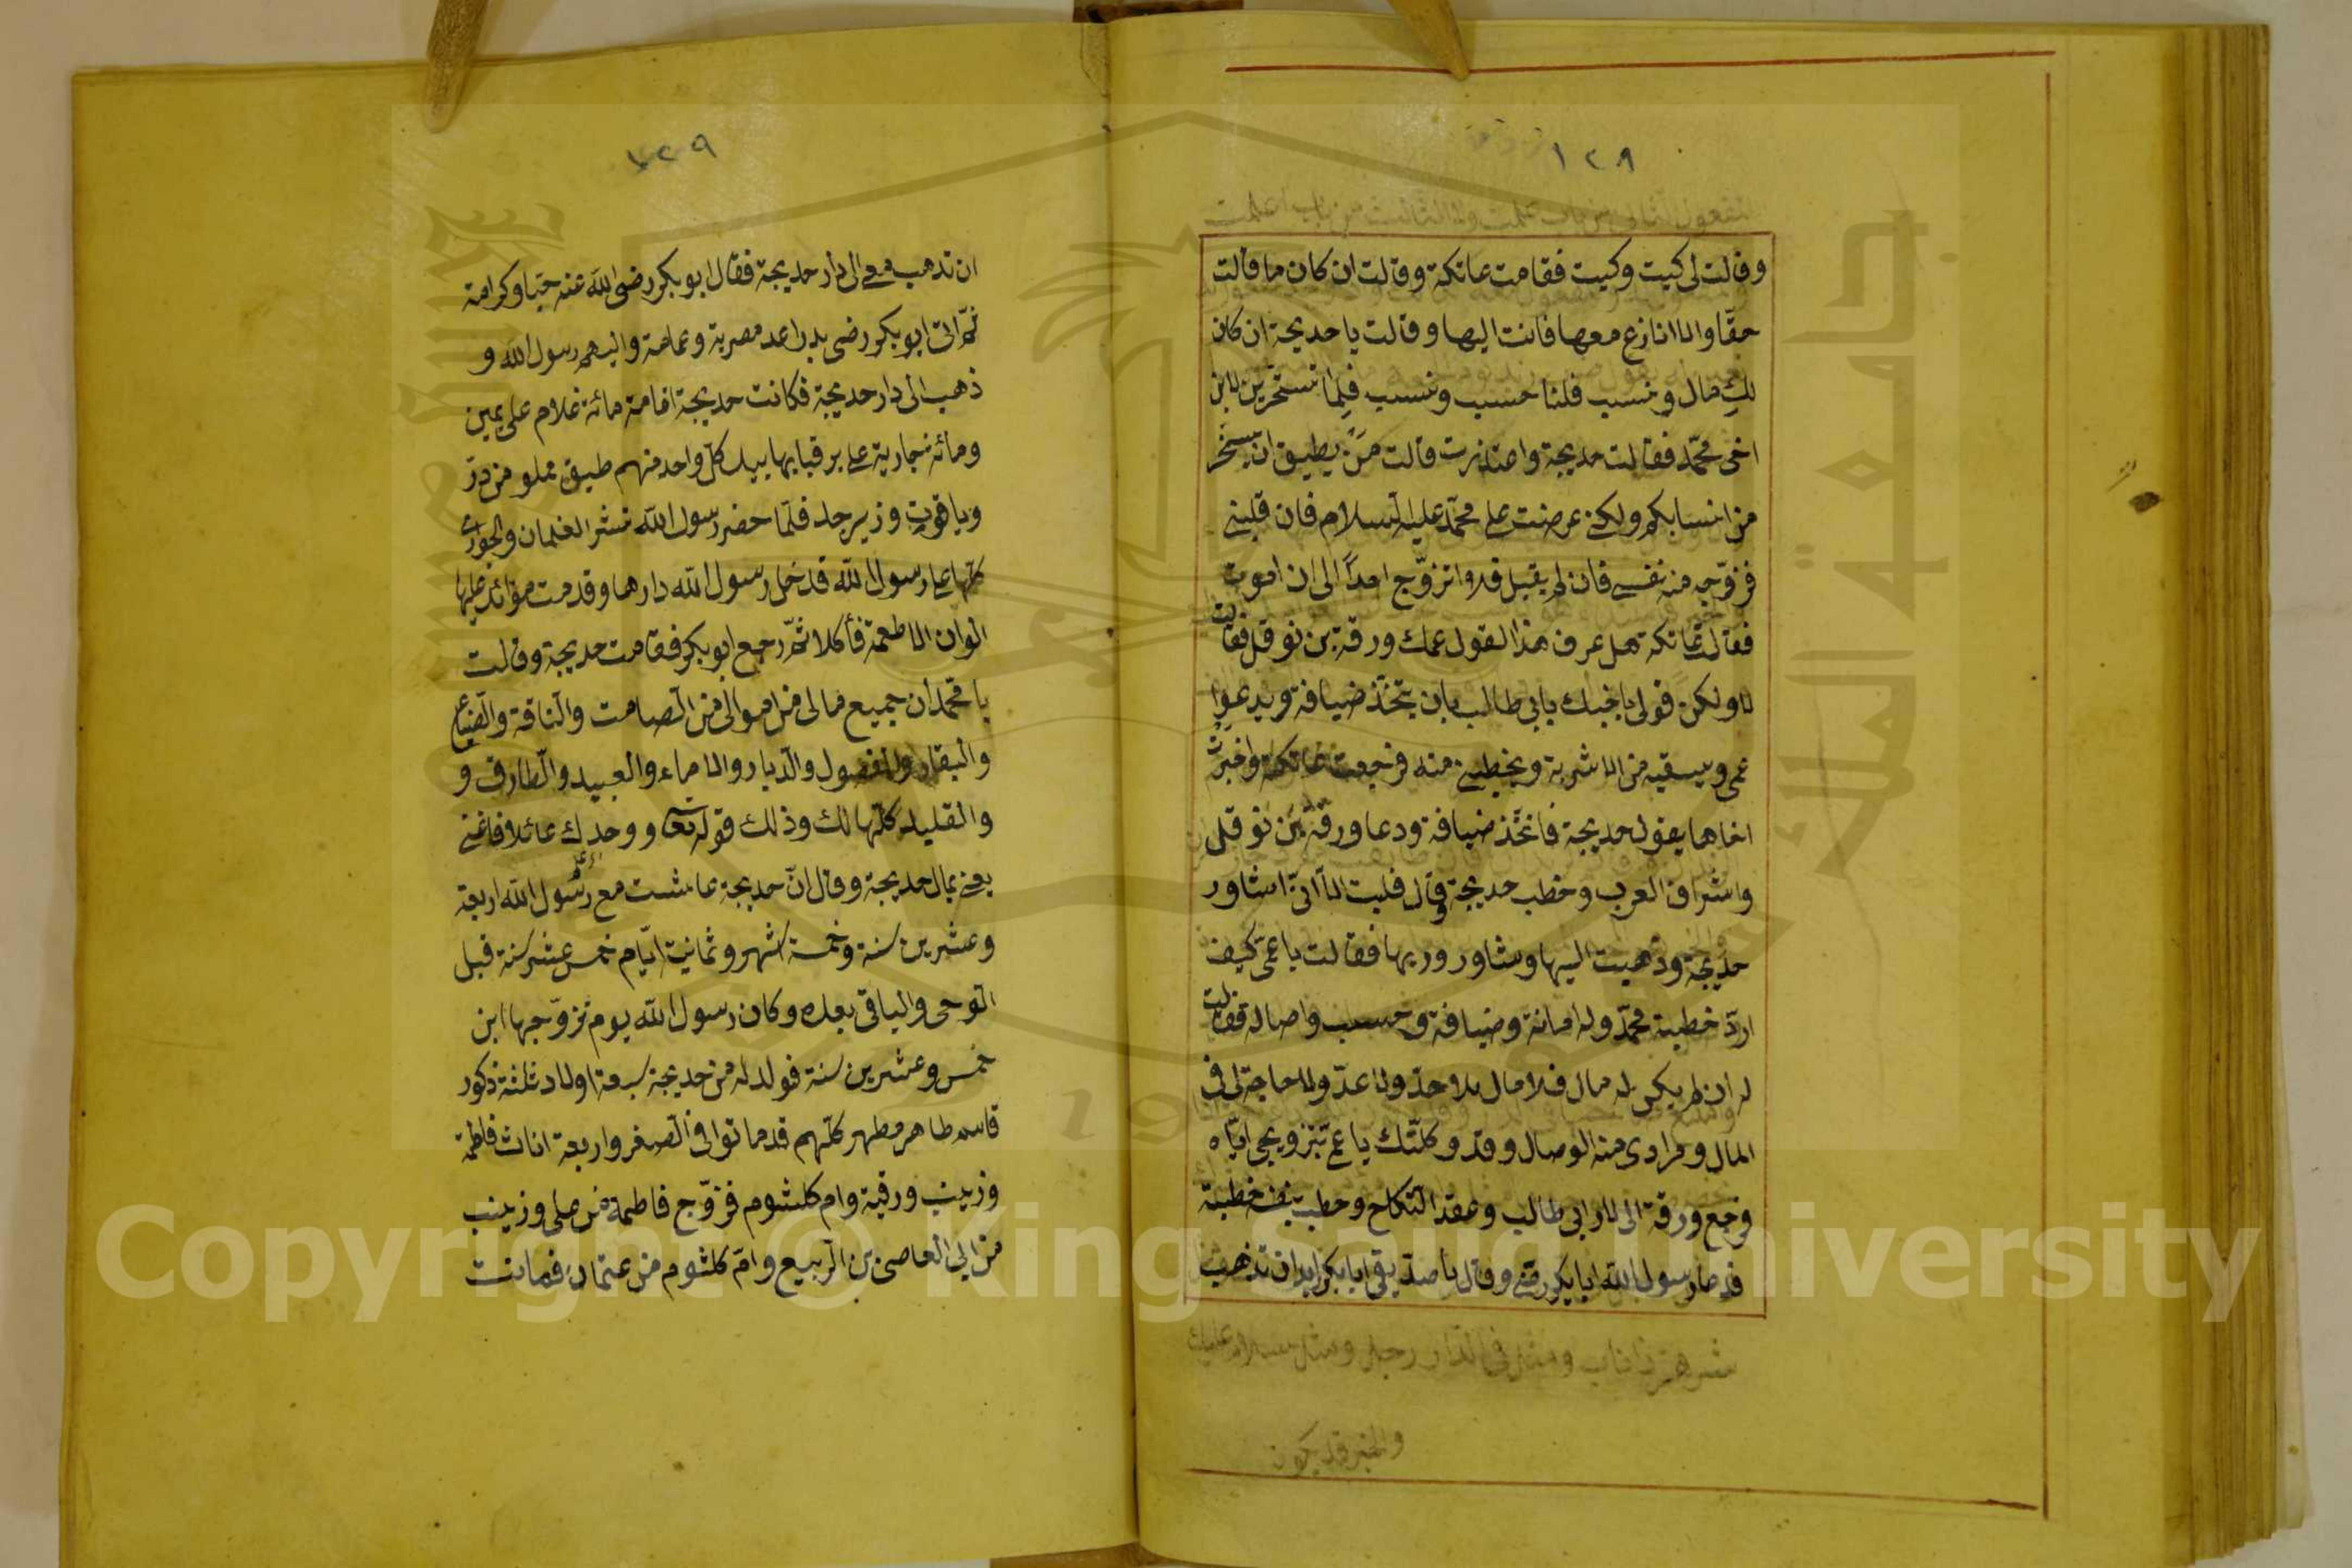 ١٢٨
وقالت لى كيت وكيت فقامت عاتكة وقالت ان كان ما قالت
حقّا والا انازع معها فاتت اليها وقالت يا خديجة ان كان
لكِ مال ونسب فلنا حسب ونسب فلِما تستخرين لابن
اخى محمّد فقالت خديجة واعتذرت قالت مَنْ يطيق انّ يسخر
من انسابكم ولكن عرضت على محمّد عليه السلام فان قبلنى
فزوّجه منه نفسى فان لم يقبل فلا اتزوّج احداً الى ان اموت
فقالت عاتكة هل عرف هذا القول عمك ورقة بن نوفل فقالت
لا ولكن قولى لاخيك يابى طالب بان يتخّذ ضيافة ويدعوا
عمى ويسقيه من الاشربة ويخطبنى منه فرجعت عاتكة واخبرت
اخاها بقول خديجة فاتخّذ ضيافة ودعا ورقة بن نوفل
واشراف العرب وخطب خديجة وقال قلبت الا انىّ اشاور
خديجة وذهبت اليها وشاور وريها فقالت يا عمّى كيف
اردّ خطبة محمّد وله امانة وضيافة وحسب واصالة فقالت
له ان لم يكن له مال فلا مال بلا حدّ ولا عدّ ولا حاجة لى فى
المال ومرادى منه الوصال وقد وكلتّك يا عمّ بتزويجى ايّاه
فرجع ورقة الى دار ابى طالب وعقد النكاح وخطب بنفسه خطبة
فدعا رسول الله ابابكر رضى وقال يا صدّيقى ابابكر اريد ان تذهب
والخبر قد يكون
١٢٩
ان تذهب معى الى دار خديجة فقال ابو بكر رضى الله عنه حبّا وكرامة
ثمّ اتى ابو بكر رضى بدراعة مصرية وعمامة والبسهم رسول الله و
ذهب الى دار خديجة فكانت خديجة اقامة مائة غلام على يمين
ومائة جارية على يسر قبابها بيد كلّ واحد منهم طبق مملو من درّ
وياقوت وزبرجد فلمّا حضر رسول الله نشر الغلمان والجوارى
كلّها على رسول الله فدخل رسول الله دارها وقدمت موائد عليها
الوان الاطعمة فأكلا ثمّ رجع ابو بكر فقامت خديجة وقالت
يا محمّد ان جميع مالى من اموالى من الصامت والناقة والضياع
والبقار والفصول والديار والاماء والعبيد والطارف و
والتقليد كلّها لك وذلك قوله تعا ووجدك عائلا فاغنى
يعنى بمال خديجة وقال انّ خديجة عاشت مع رسول الله اربعة
وعشرين سنة وخمسة اشهر وثمانية ايّام خمس عشر سنة قبل
الوحى والباقى بعده وكان رسول الله يوم تزوّجها ابن
خمس وعشرين سنة فولد له من خديجة سبعة اولاد ثلثة ذكور
قاسم طاهر مطهر كلّهم قد ماتوا فى الصغر واربعة اناث فاطمة
وزينب ورقية وام كلثوم فزوّج فاطمة من على وزينب
من ابى العاصى بن الربيع وامّ كلثوم من عثمان فماتت
Copyright © King Saud University